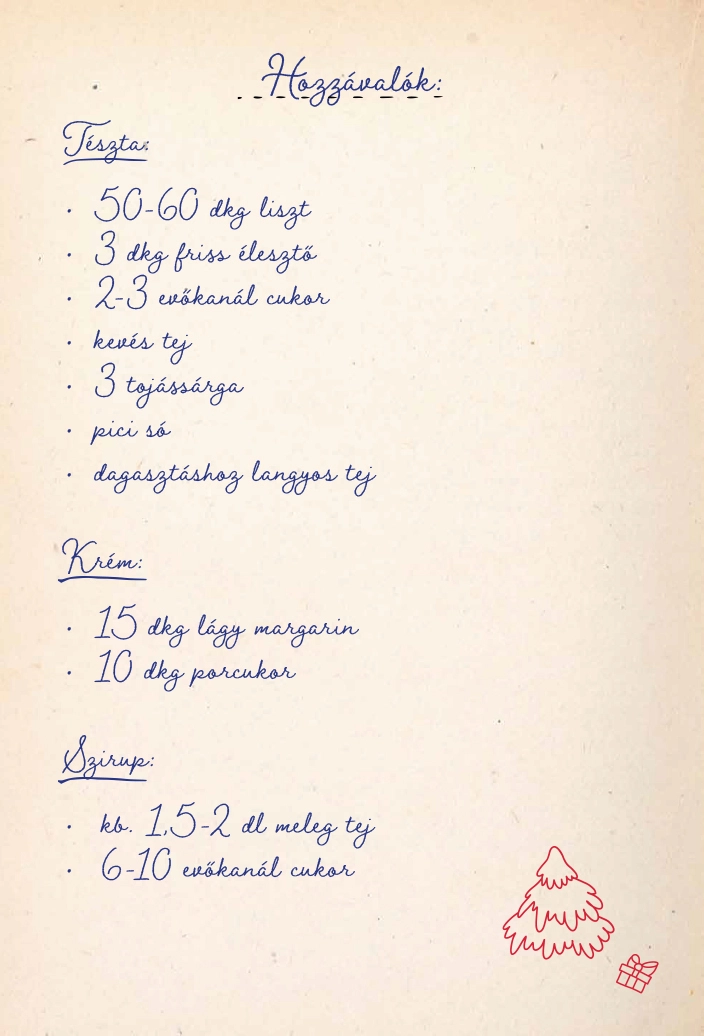 Hozzávalók:
Tészta:
• 50-60 dkg liszt
• 3 dkg friss élesztő
• 2-3 evőkanál cukor
• kevés tej
• 3 tojássárga
• pici só
• dagasztáshoz langyos tej
Krém:
• 15 dkg lágy margarin
• 10 dkg porcukor
Szirup:
• kb. 1,5-2 dl meleg tej
• 6-10 evőkanál cukor